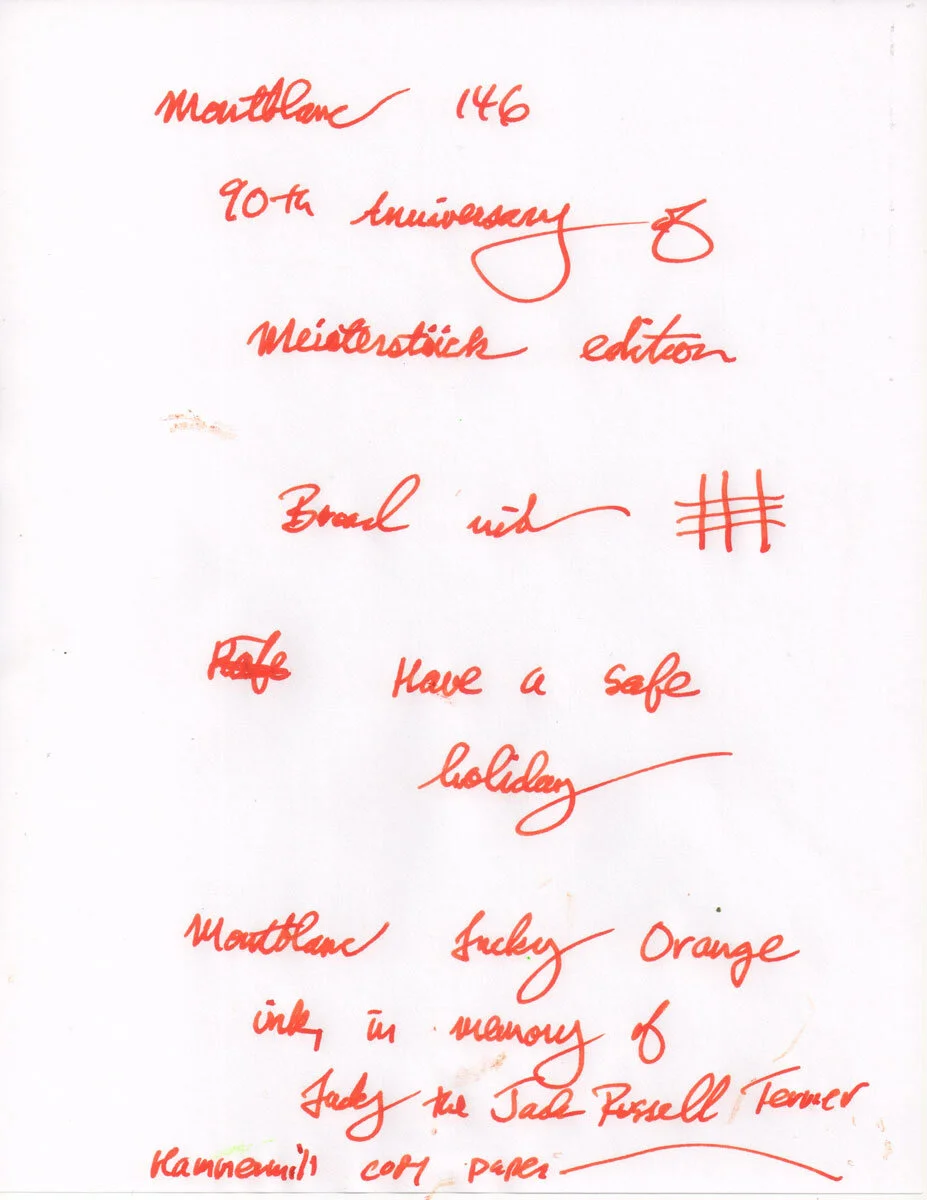 Montblanc 146
90th Anniversary of
Meisterstück edition
Broad nib
Have a safe
holiday
Montblanc Lucky Orange
ink, in memory of
Lucky the Jack Russell Terrier
Hammermill copy paper